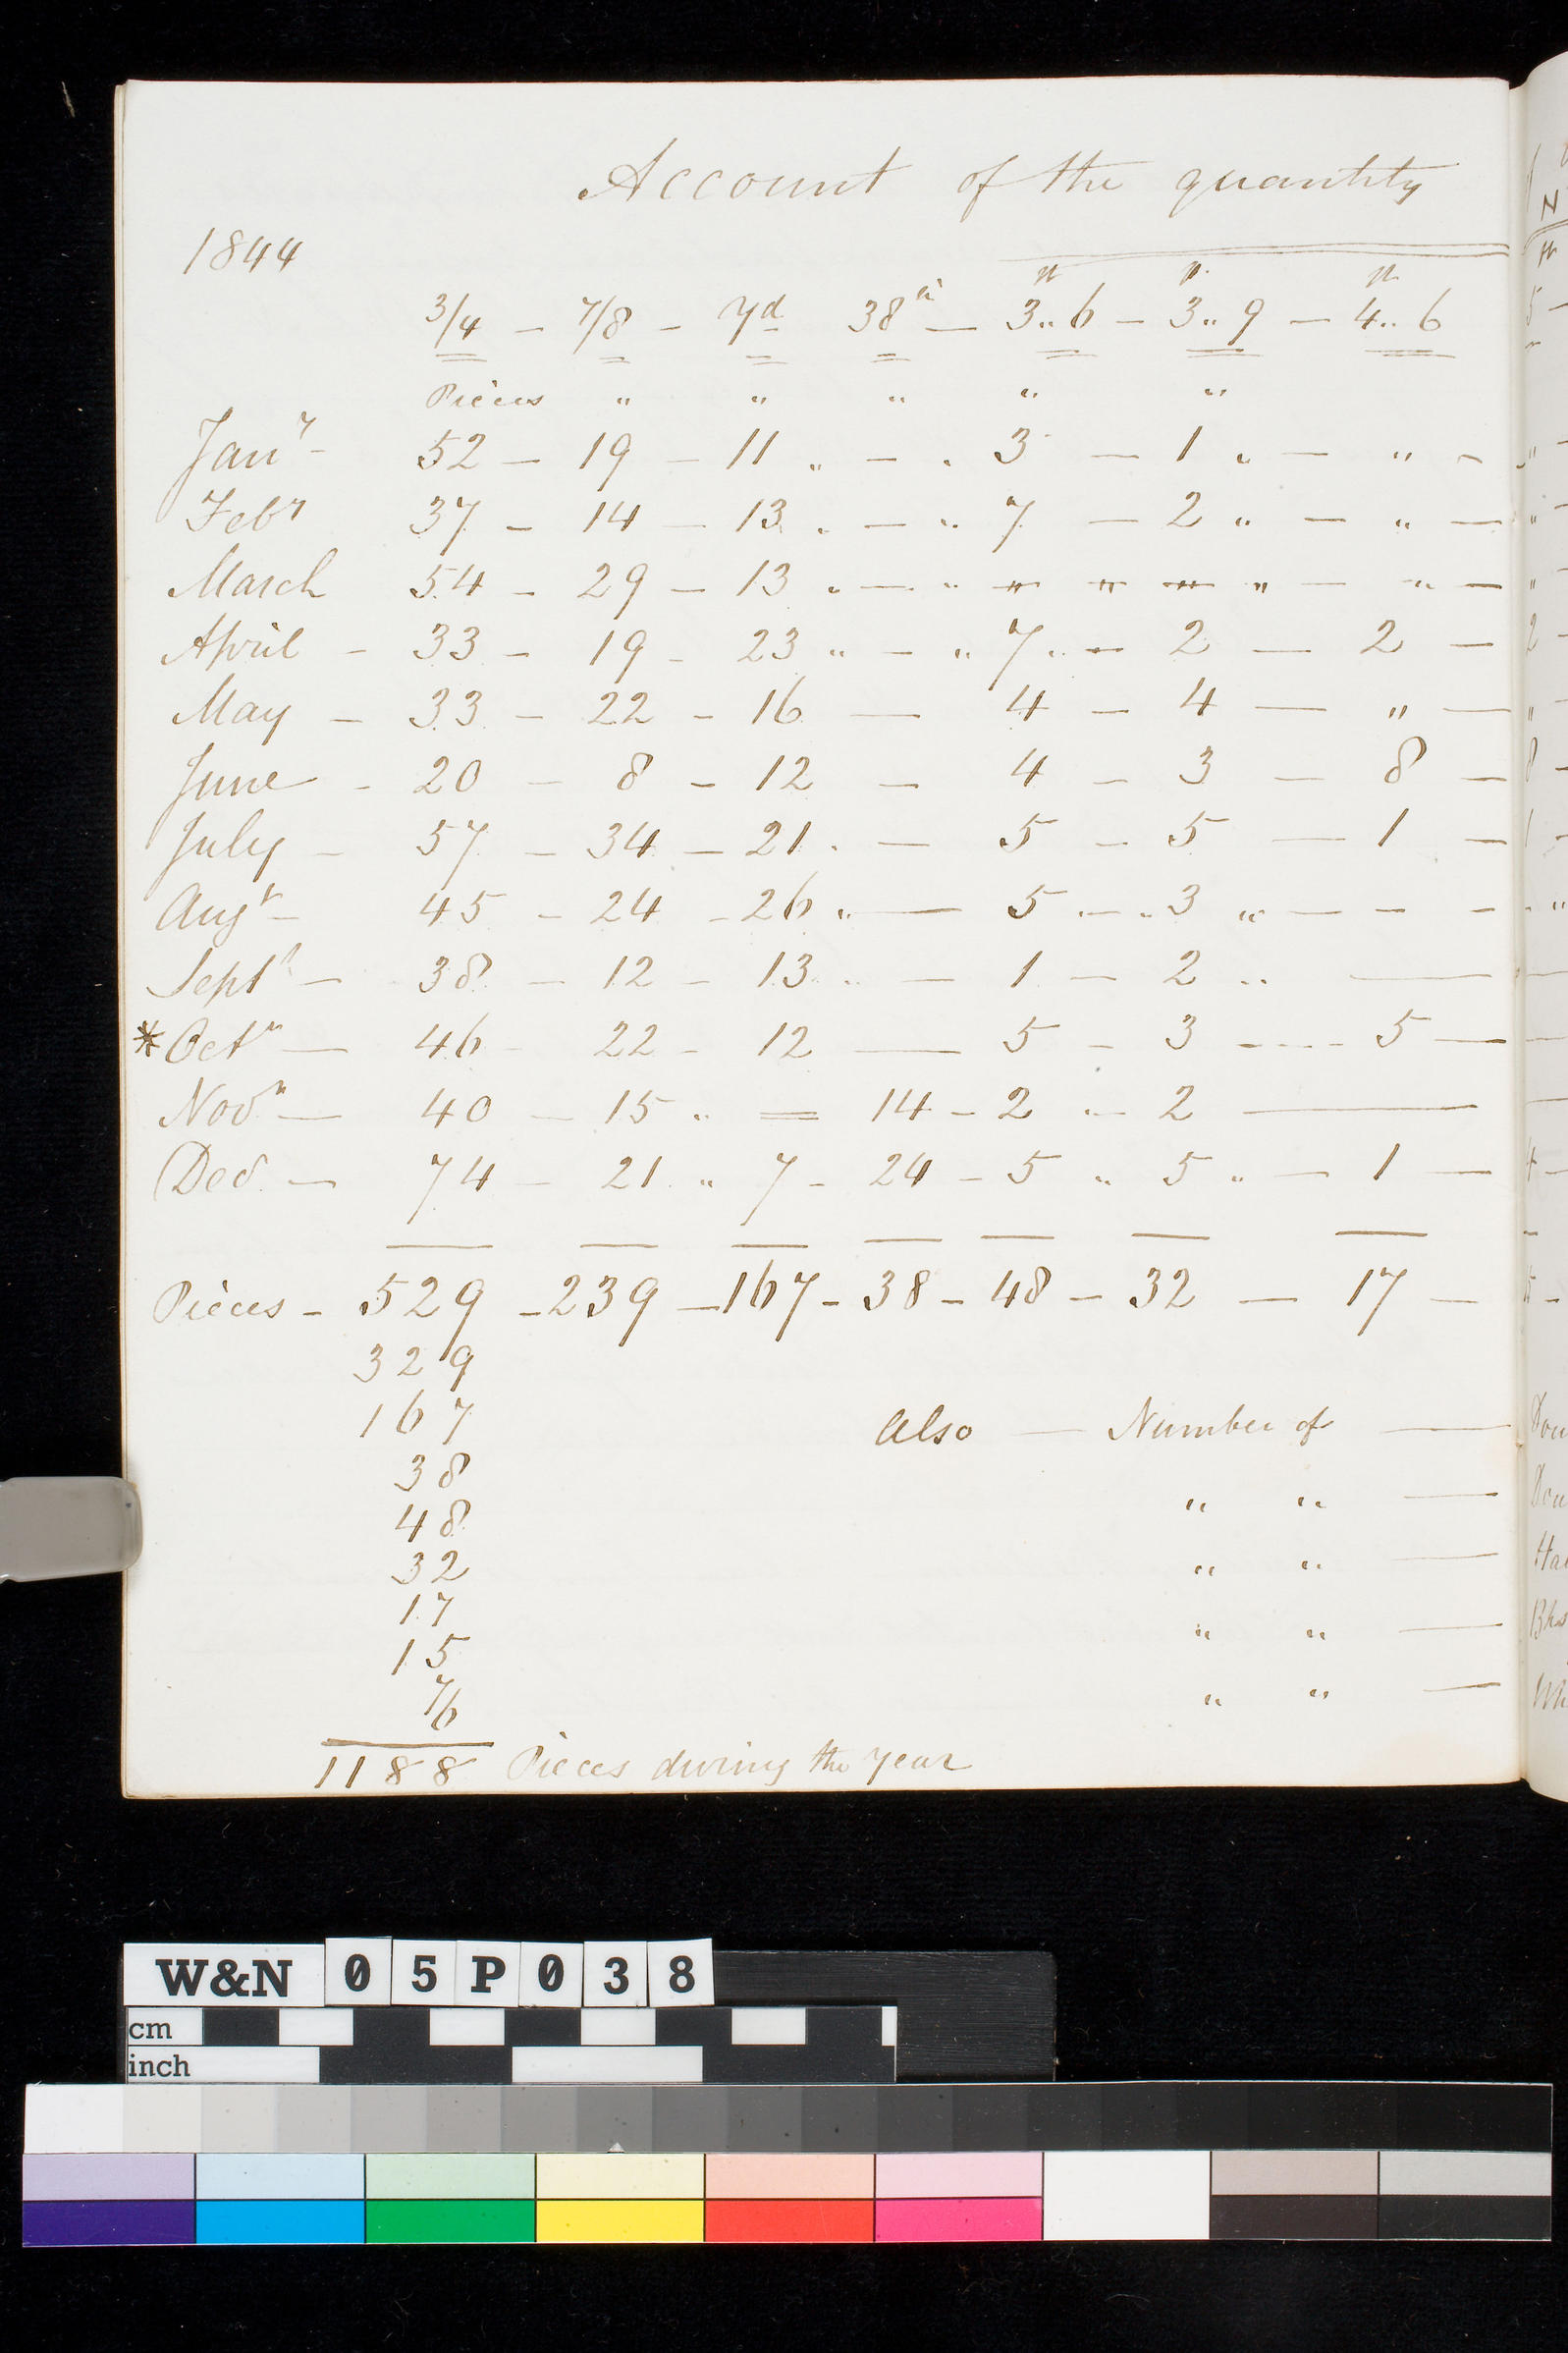 Account of the quantity
1844
3/4 — 7/8 — Yd 38 in — 3.. 6 — 3.. 9 — 4.. 6
ft ft ft
Pieces " " " " "
Jany - 52 — 19 — 11 " — " 3 — 1 " — " —
Feby 37 — 14 — 13 " — " 7 — 2 " — " —
March 54 — 29 — 13 " — " " " " " — " —
April — 33 — 19 — 23 " — " 7 " — 2 — 2 —
May — 33 — 22 — 16 — 4 — 4 — " —
June — 20 — 8 — 12 — 4 — 3 — 8 —
July — 57 — 34 — 21 . — 5 — 5 — 1 —
Augt — 45 — 24 — 26 " — 5 . — . 3 " — — —
Septr — 38 — 12 — 13 .. — 1 — 2 .. —
* Octr — 46 — 22 — 12 — 5 — 3 ---- 5 —
Novr — 40 — 15 .. = 14 — 2 .. — 2 —
Decr — 74 — 21 " 7 — 24 — 5 " 5 " — 1 —
Pieces — 529 — 239 — 167 — 38 — 48 — 32 — 17 —
329
167
38
48
32
17
15
76
1188 Pieces during the Year
Also — Number of —
" " —
" " —
" " —
" " —
W&N 05P038
cm
inch